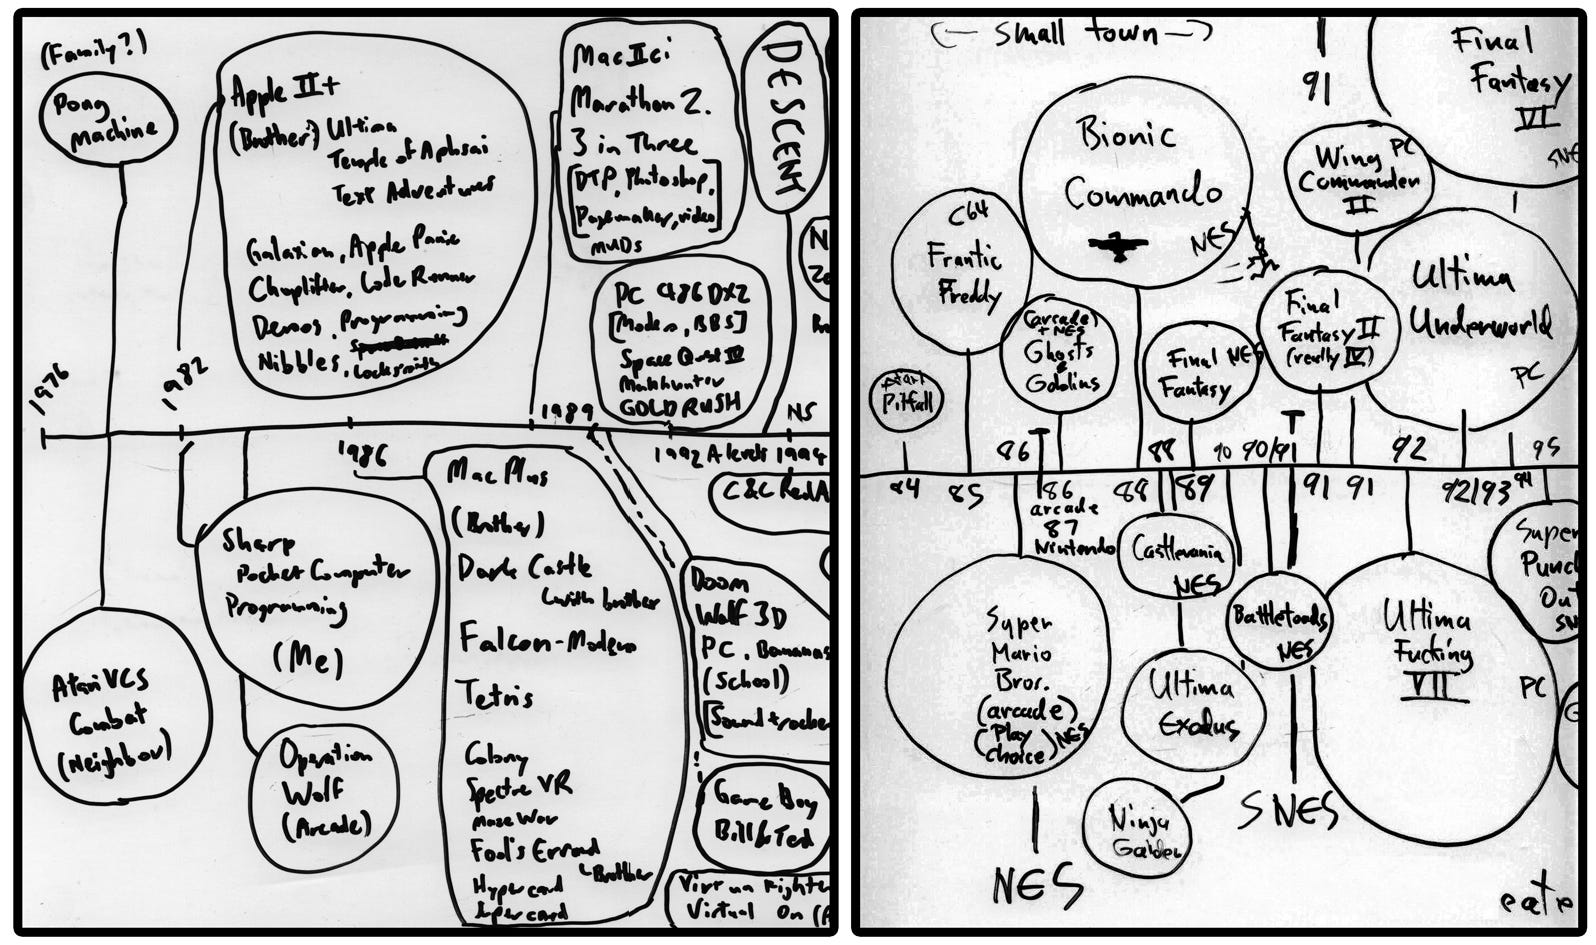 (Family?)
Pong
Machine
Apple II+
(Brother?) Ultima
Temple of Aphsai
Text Adventures
Galaxian, Apple Panic
Choplifter, Lode Runner
Demos, Programming
Nibbles, Locksmith
Mac IIci
Marathon 2.
3 in Three
[DTP, Photoshop,
Pagemaker, video]
MUDs
DESCENT
PC 486DX2
[Modem, BBS]
Space Quest IV
Manhunter
GOLD RUSH
N
1976
1982
1986
1989
1992 A levels
1994
NS
C&C Red A
Sharp
Pocket Computer
Programming
(Me)
Atari VCS
Combat
(Neighbor)
Operation
Wolf
(Arcade)
Mac Plus
(Brother)
Dark Castle
with brother
Falcon-Modem
Tetris
Colony
Spectre VR
Maze War
Fool's Errand
Brother
Hypercard
Supercard
Doom
Wolf 3D
PC, Bananas
(School)
[Soundtracker
Game Boy
Bill & Ted
Virtua Fighter
Virtual On (A
(← small town →)
91
Final
Fantasy
VI
SNE
Bionic
Commando
NES
Wing PC
Commander
II
C64
Frantic
Freddy
(arcade)
+ NES
Ghosts
Goblins
Atari
Pitfall
Final NES
Fantasy
Final
Fantasy II
(really IV)
Ultima
Underworld
PC
86
88
90
90/91
92
95
84
85
86
arcade
87
Nintendo
88
89
91
91
92/93
94
Castlevania
NES
Super
Mario
Bros.
(arcade)
(Play
Choice) NES
NES
Ultima
Exodus
Ninja
Gaiden
Battletoads
NES
SNES
Ultima
Fucking
VII
PC
Super
Punch
Out
SN
eate